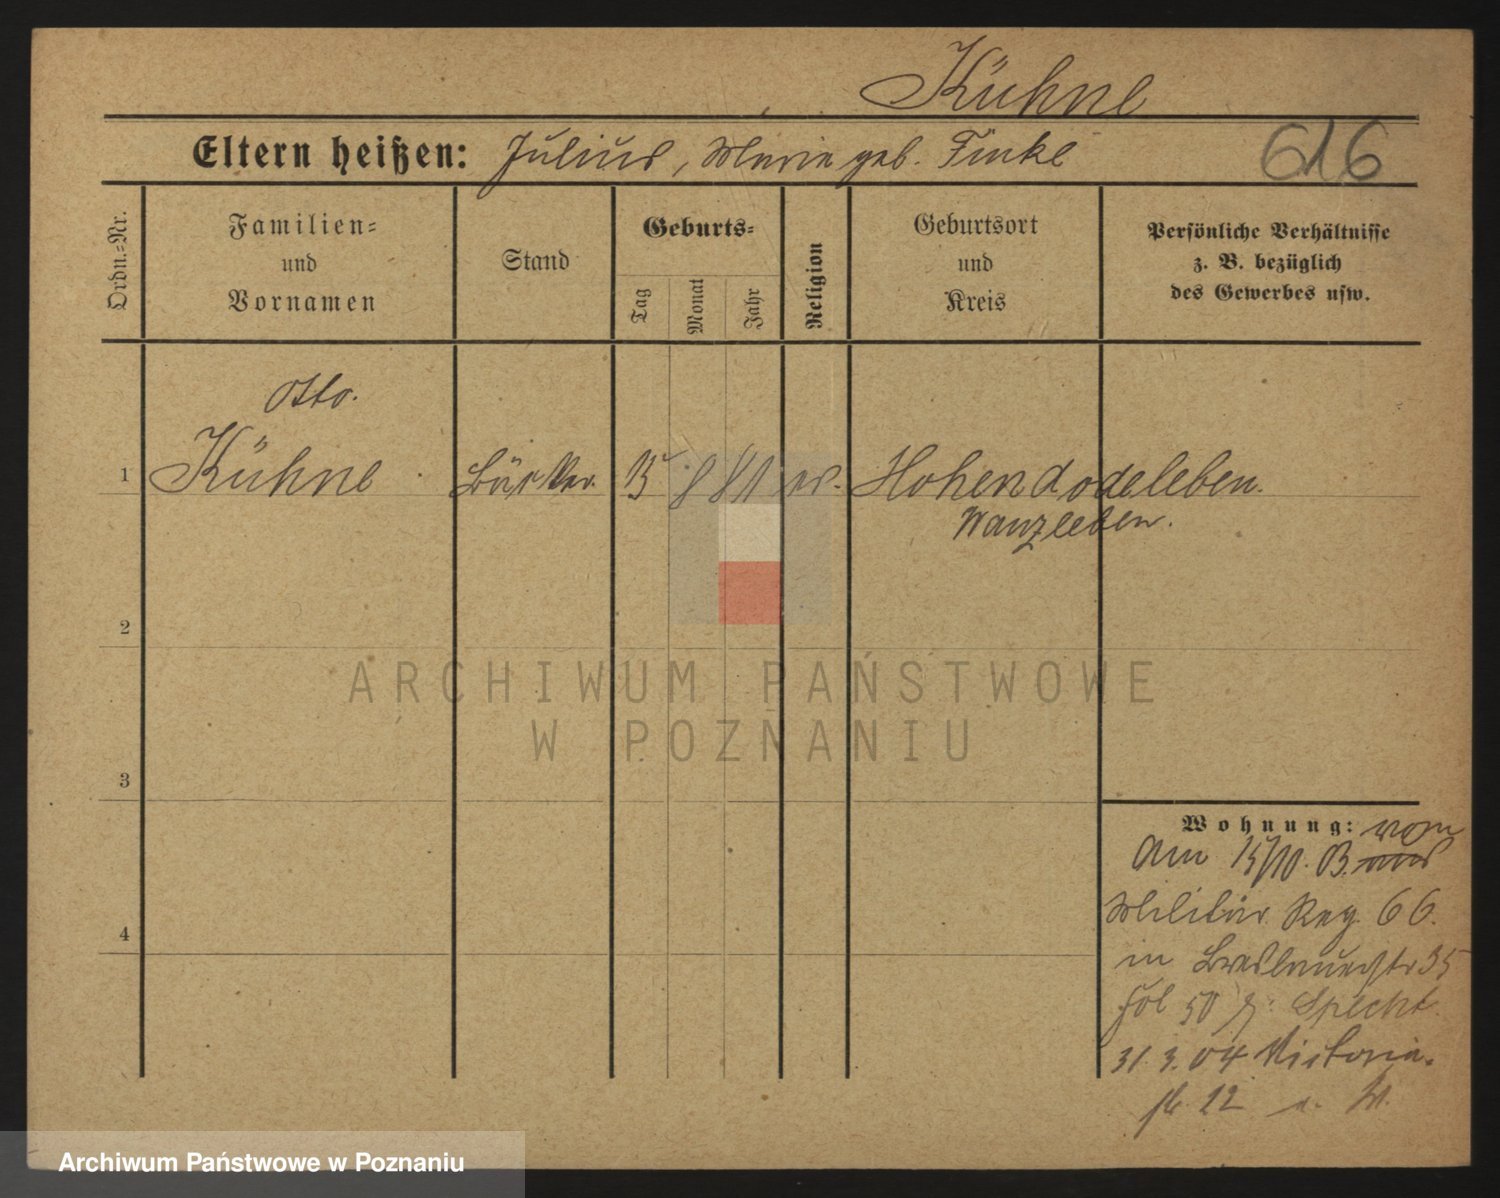 Kühne
Eltern heißen: Julius, Marie geb. Finke
616
Ordn.-Nr.
Familien-
und
Vornamen
Stand
Geburts-
Tag
Monat
Jahr
Religion
Geburtsort
und
Kreis
Persönliche Verhältnisse
z. B. bezüglich
des Gewerbes usw.
Otto.
1 Kühne 8 81 ev. Hohendodeleben.
Wanzleben.
2
3
4
ARCHIWUM PAŃSTWOWE
W POZNANIU
Wohnung: vom
Am 15/10. 03.
Militär Reg. 66.
in Breslauerstr 35
Fol 50 b. Specht.
31.3.04 Victoria-
str. 12
Archiwum Państwowe w Poznaniu